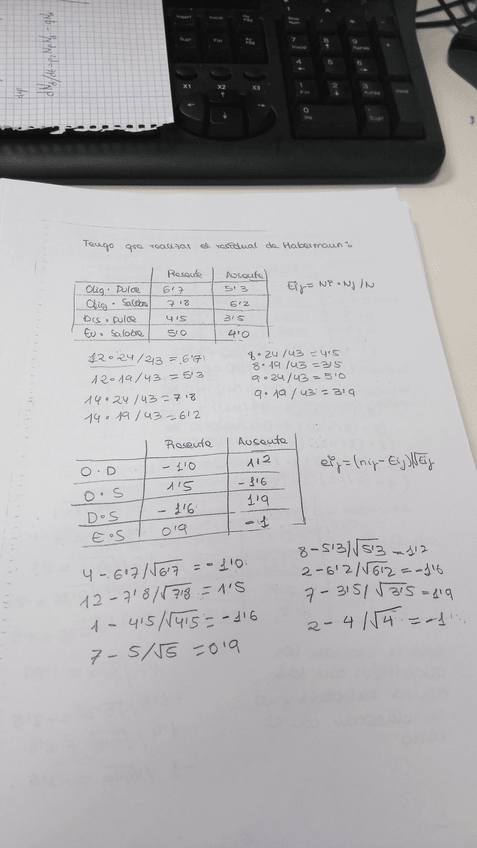 dN/dt = 
X1 X2 X3
7 8 9
4 5 6
1 2 3
0
Tengo que realizar el residual de Habermann:
Presente Ausente
Olig. Dulce 6'7 5'3
Olig. Salobre 7'8 6'2
Dis. Dulce 4'5 3'5
Eu. Salobre 5'0 4'0
Eij = Ni · Nj / N
12·24/43 = 6'7
12·19/43 = 5'3
14·24/43 = 7'8
14·19/43 = 6'2
8·24/43 = 4'5
8·19/43 = 3'5
9·24/43 = 5'0
9·19/43 = 3'9
Presente Ausente
O·D -1'0 1'2
O·S 1'5 -1'6
D·S -1'6 1'9
E·S 0'9 -1
eij = (nij - Eij)√Eij
4 - 6'7/√6'7 = -1'0
12 - 7'8/√7'8 = 1'5
1 - 4'5/√4'5 = -1'6
7 - 5/√5 = 0'9
8 - 5'3/√5'3 = 1'2
2 - 6'2/√6'2 = -1'6
7 - 3'5/√3'5 = 1'9
2 - 4/√4 = -1